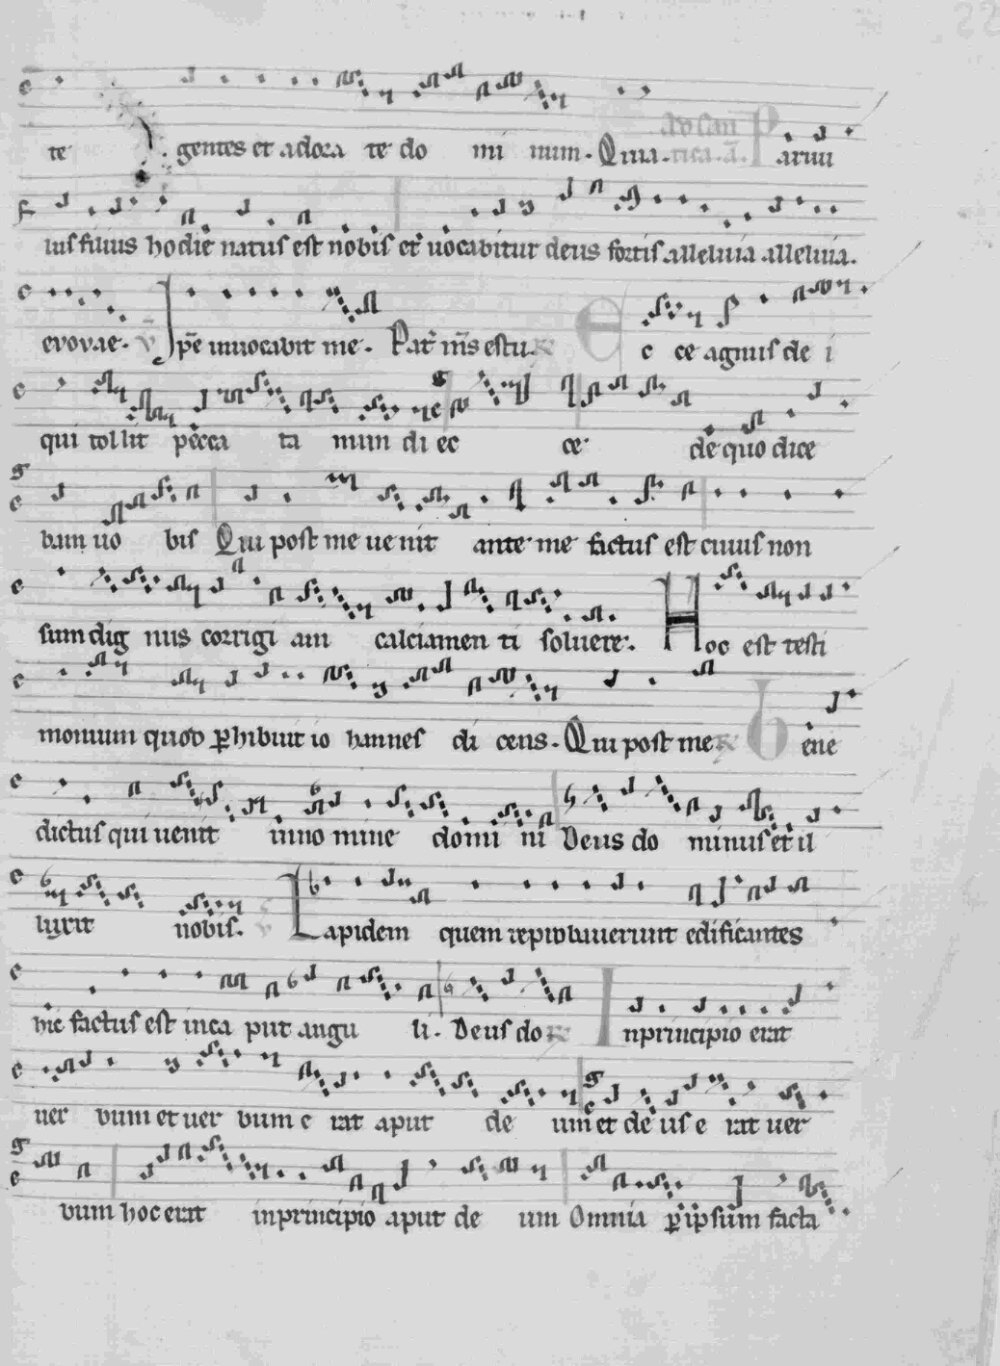 22
te gentes et adora te do mi num. Quia. ad laud. P aruu
lus filius hodie natus est nobis et uocabitur deus fortis alleluia alleluia.
evovae. v Ipe inuocabit me. Pat ms es tu. R E c ce agnus de i
qui tollit pecca ta mun di ec ce de quo dice
bam uo bis Qui post me ue nit ante me factus est cuius non
sum dig nus corrigi am calciamen ti soluere. Hoc est testi
monium quod phibuit io hannes di cens. Qui post me R b ene
dictus qui uenit inno mine domi ni Deus do minus et il
luxit nobis. v Lapidem quem reprobauerunt edificantes
hic factus est in ca put angu li. Deus do R I nprincipio erat
uer bum et uer bum e rat aput de um et de us e rat uer
bum hoc erat inprincipio aput de um Omnia p ipsum facta